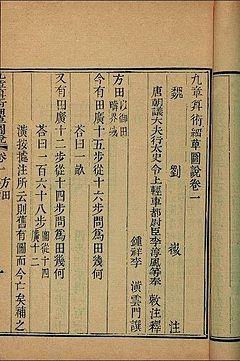 九章算術細草圖說卷一
魏 劉 徽 注
唐朝議大夫行太史令上輕車都尉臣李淳風等奉 敕注釋
鍾祥李 潢雲門譔
方田以御田疇界域
今有田廣十五步從十六步問為田幾何
荅曰一畝
又有田廣十二步從十四步問為田幾何
荅曰一百六十八步圖從十四廣十二
潢按據注所云則舊有圖而今亡矣補之